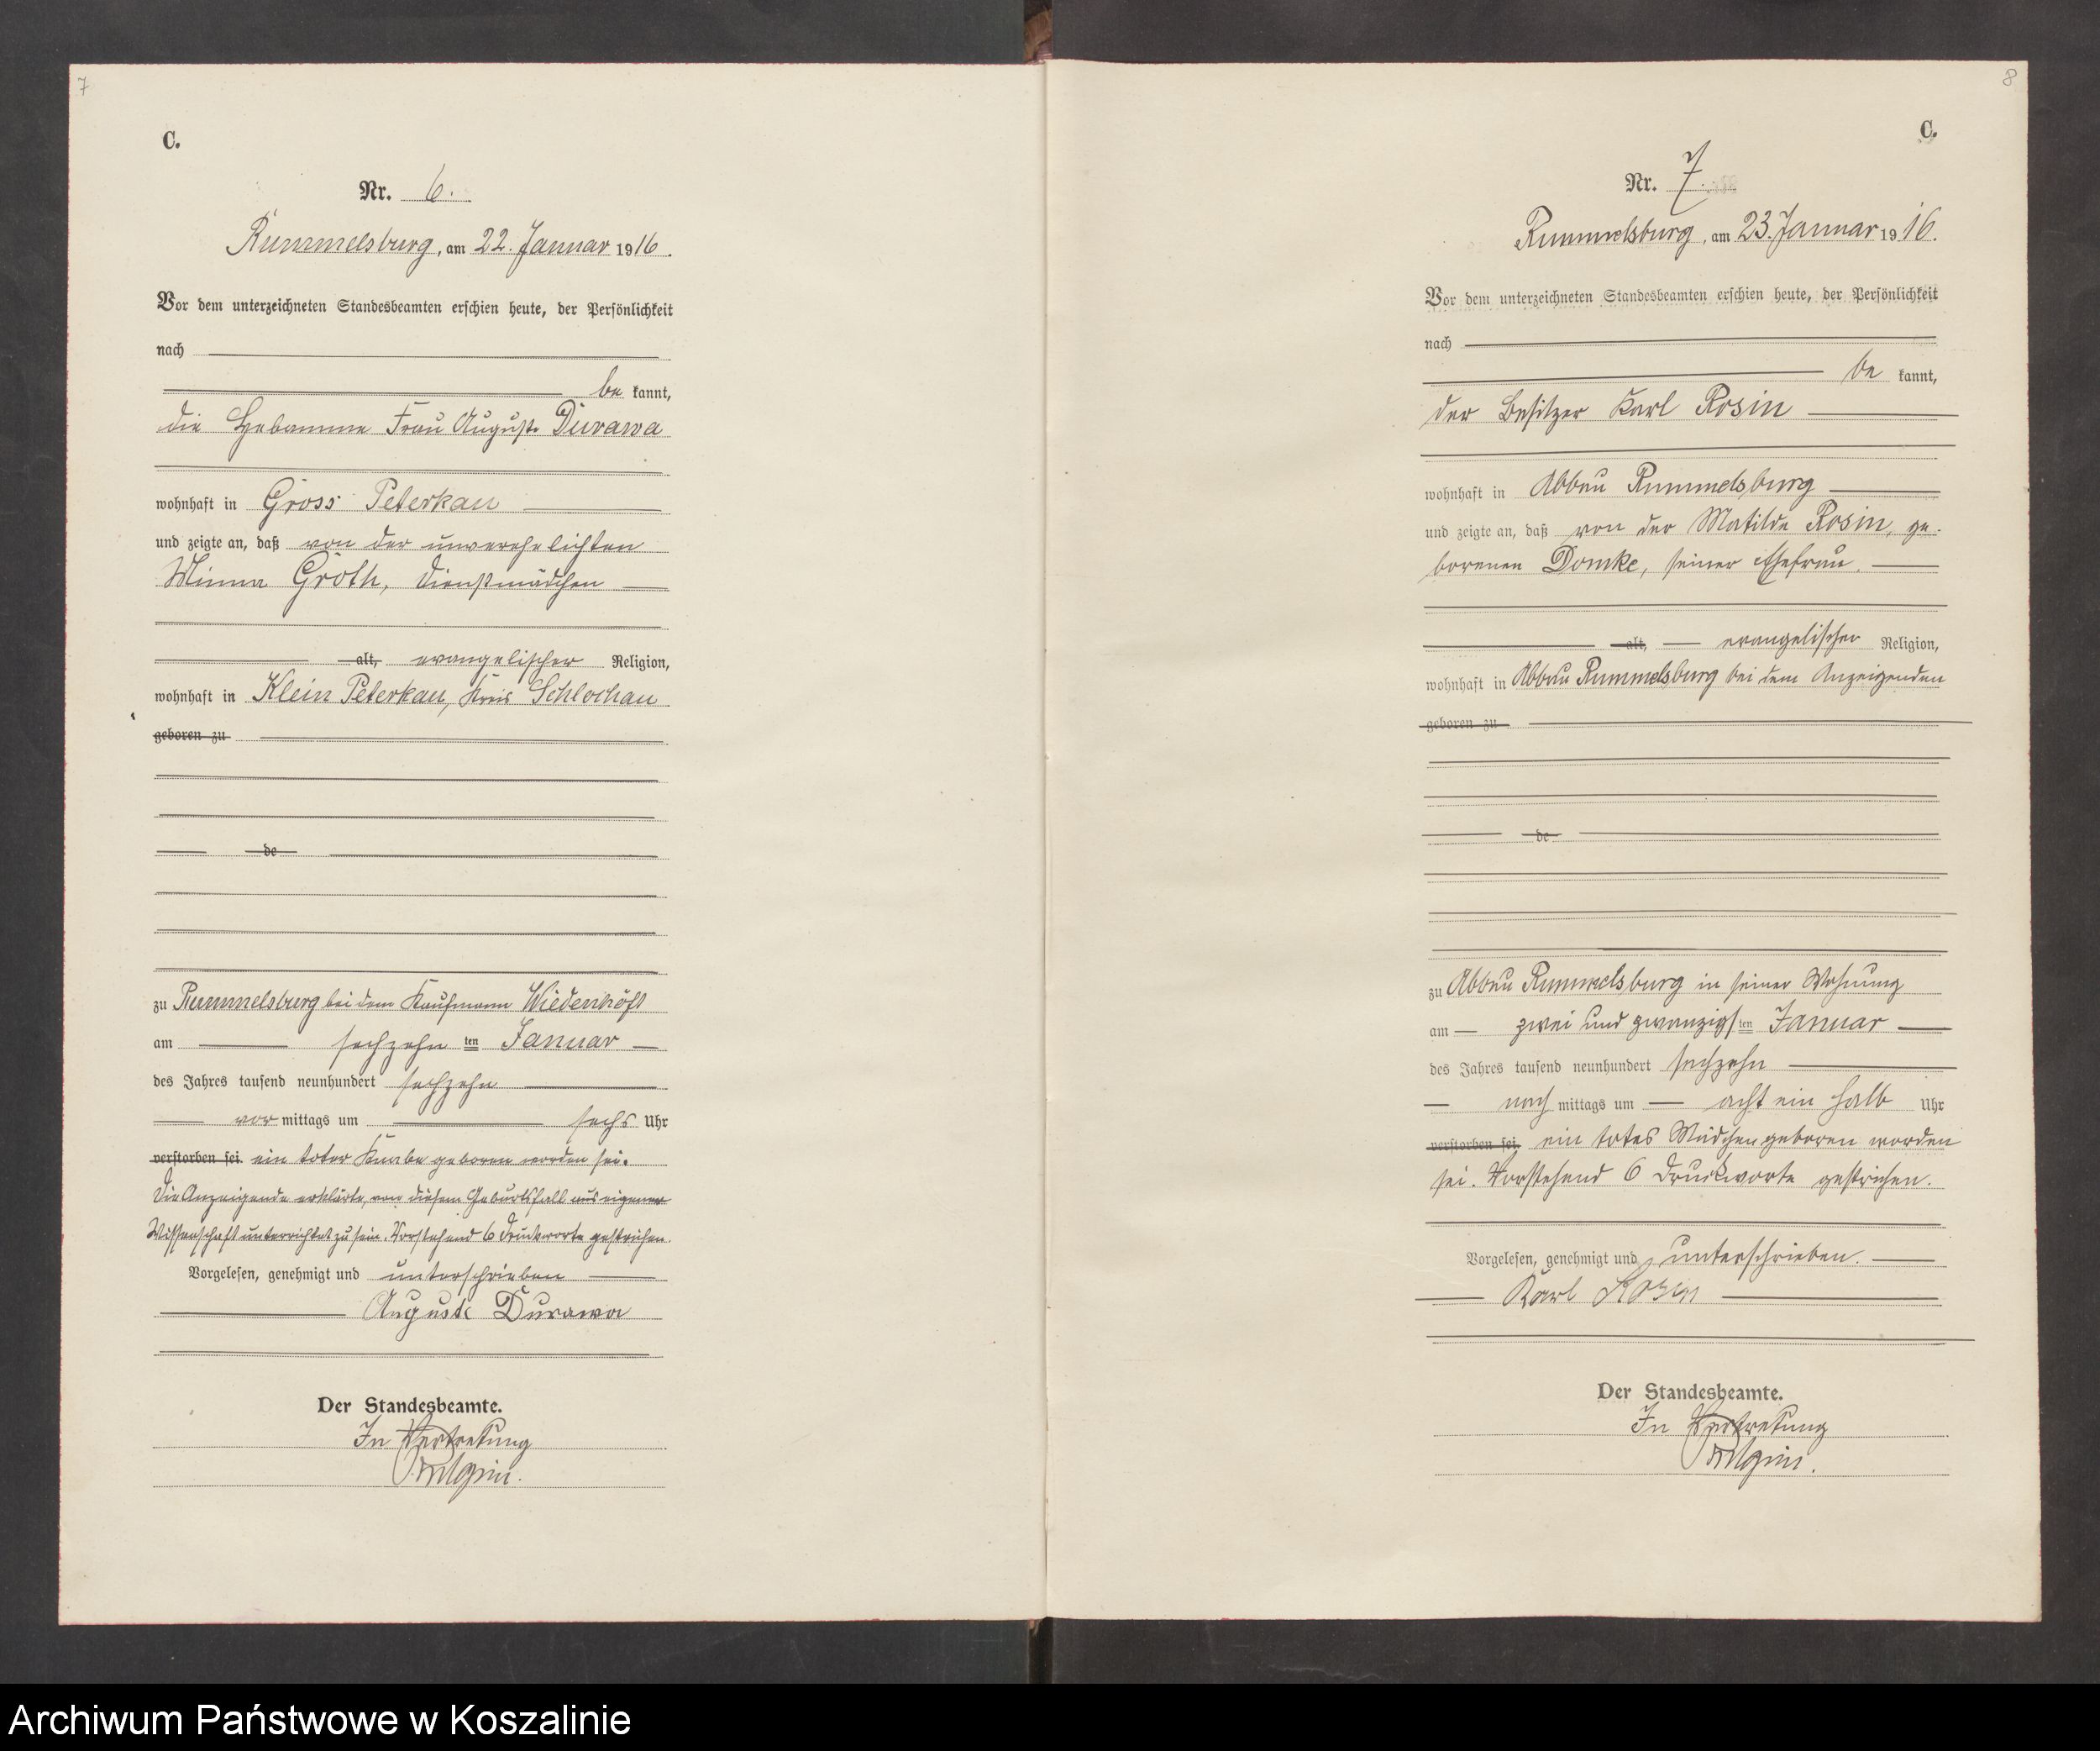 7
C.
Nr. 6.
Rummelsburg, am 22. Januar 1916.
Vor dem unterzeichneten Standesbeamten erschien heute, der Persönlichkeit
nach
be kannt,
die Hebamme Frau Auguste Durawa
wohnhaft in Gross Peterkau
und zeigte an, daß von der unverehelichten
Minna Groth, Dienstmädchen
alt, evangelischer Religion,
wohnhaft in Klein Peterkau, Kreis Schlochau
geboren zu
de
zu Rummelsburg bei dem Kaufmann Wiedenhöft
am sechzehn ten Januar
des Jahres tausend neunhundert sechzehn
vor mittags um sechs Uhr
verstorben sei ein toter Knabe geboren worden sei.
Die Anzeigende erklärte, von diesem Geburtsfall aus eigener
Wissenschaft unterrichtet zu sein. Vorstehend 6 Druckworte gestrichen.
Vorgelesen, genehmigt und unterschrieben
Auguste Durawa
Der Standesbeamte.
In Vertretung
8
C.
Nr. 7.
Rummelsburg, am 23. Januar 1916.
Vor dem unterzeichneten Standesbeamten erschien heute, der Persönlichkeit
nach
be kannt,
der Besitzer Karl Rosin
wohnhaft in Abbau Rummelsburg
und zeigte an, daß von der Matilde Rosin, ge-
borenen Domke, seiner Ehefrau.
alt, evangelischer Religion,
wohnhaft in Abbau Rummelsburg bei dem Anzeigenden
geboren zu
de
zu Abbau Rummelsburg in seiner Wohnung
am zwei und zwanzigs ten Januar
des Jahres tausend neunhundert sechzehn
nach mittags um acht ein halb Uhr
verstorben sei, ein totes Mädchen geboren worden
sei. Vorstehend 6 Druckworte gestrichen.
Vorgelesen, genehmigt und unterschrieben.
Karl Rosin
Der Standesbeamte.
In Vertretung
Archiwum Państwowe w Koszalinie